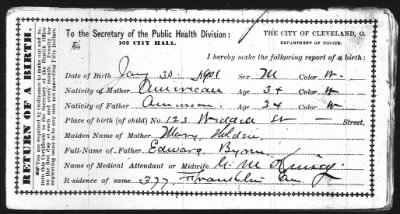 RETURN OF A BIRTH.
To the Secretary of the Public Health Division:
102 CITY HALL.
THE CITY OF CLEVELAND, O.
DEPARTMENT OF POLICE.
I hereby make the following report of a birth:
Date of Birth Jany 30 1901 Sex M Color W
Nativity of Mother American Age 34 Color W
Nativity of Father American Age 34 Color W
Place of birth (of child) No. 123 St Street,
Maiden Name of Mother Mary Holden
Full-Name of Father Edward Byrne
Name of Medical Attendant or Midwife G. M.
Residence of same 377 Franklin Ave